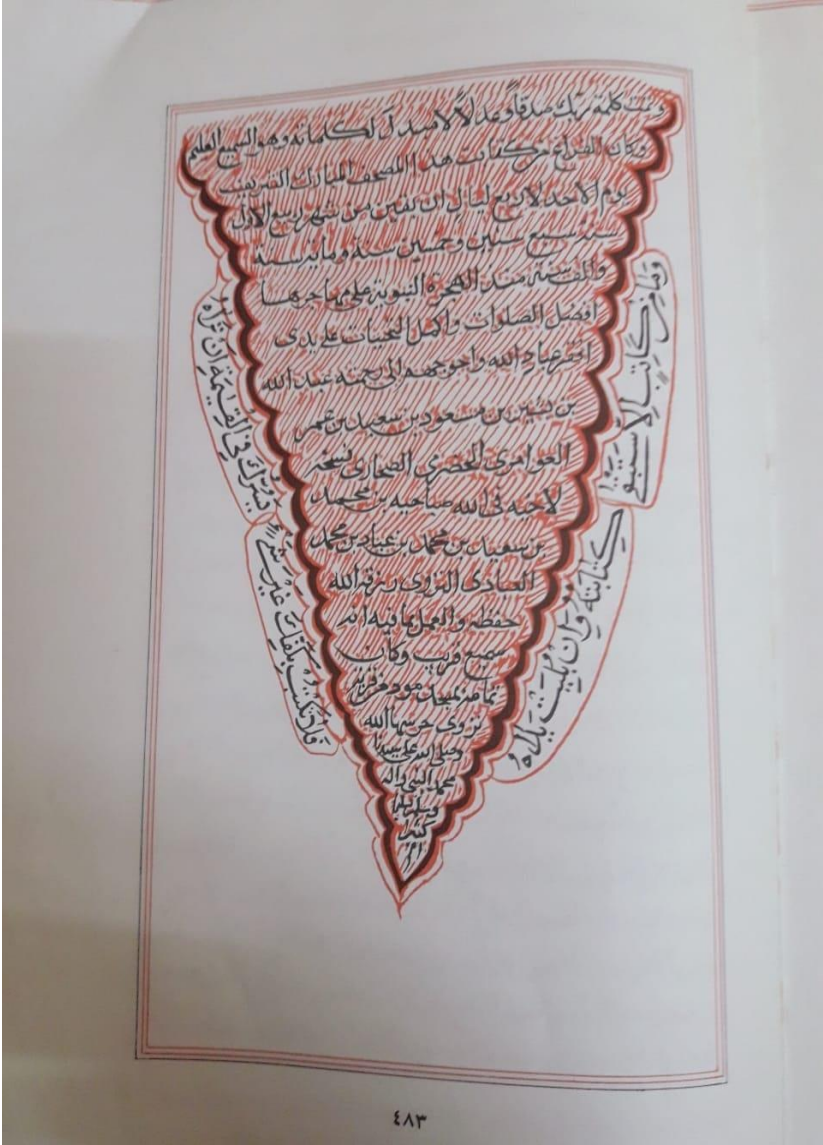 وتمت كلمة ربك صدقاً وعدلاً لا مبدل لكلماته وهو السميع العليم
وكان الفراغ من كتابت هذا المصحف المبارك الشريف
يوم الاحد لاربع ليال ان بقين من شهر ربيع الاول
سنة سبع سنين وخمسين سنة وماية سنة
والف سنة منذ الهجرة النبوية على مهاجرها
افضل الصلوات واكمل التحيات على يدي
افقر عباد الله واحوجهم الى رحمته عبد الله
بن بشير بن مسعود بن سعيد بن عمر
العوامري الحضرمي الصحاري نسخه
لاخيه في الله صاحبه بن محمد
بن سعيد بن محمد بن عباد بن محمد
العبادي النزوي رزقه الله
حفظه والعمل بما فيه انه
سميع قريب وكان
تمامه بمسجد
نزوى حرسها الله
وصلى الله على نبيه
محمد النبي واله
وسلم تسليما
كثيرا
وما من كاتب الا ستبقى
كتابته وان بليت يداه
فلا تكتب بكفك غير شيء
يسرك في القيمة ان تراه
٤٨٣